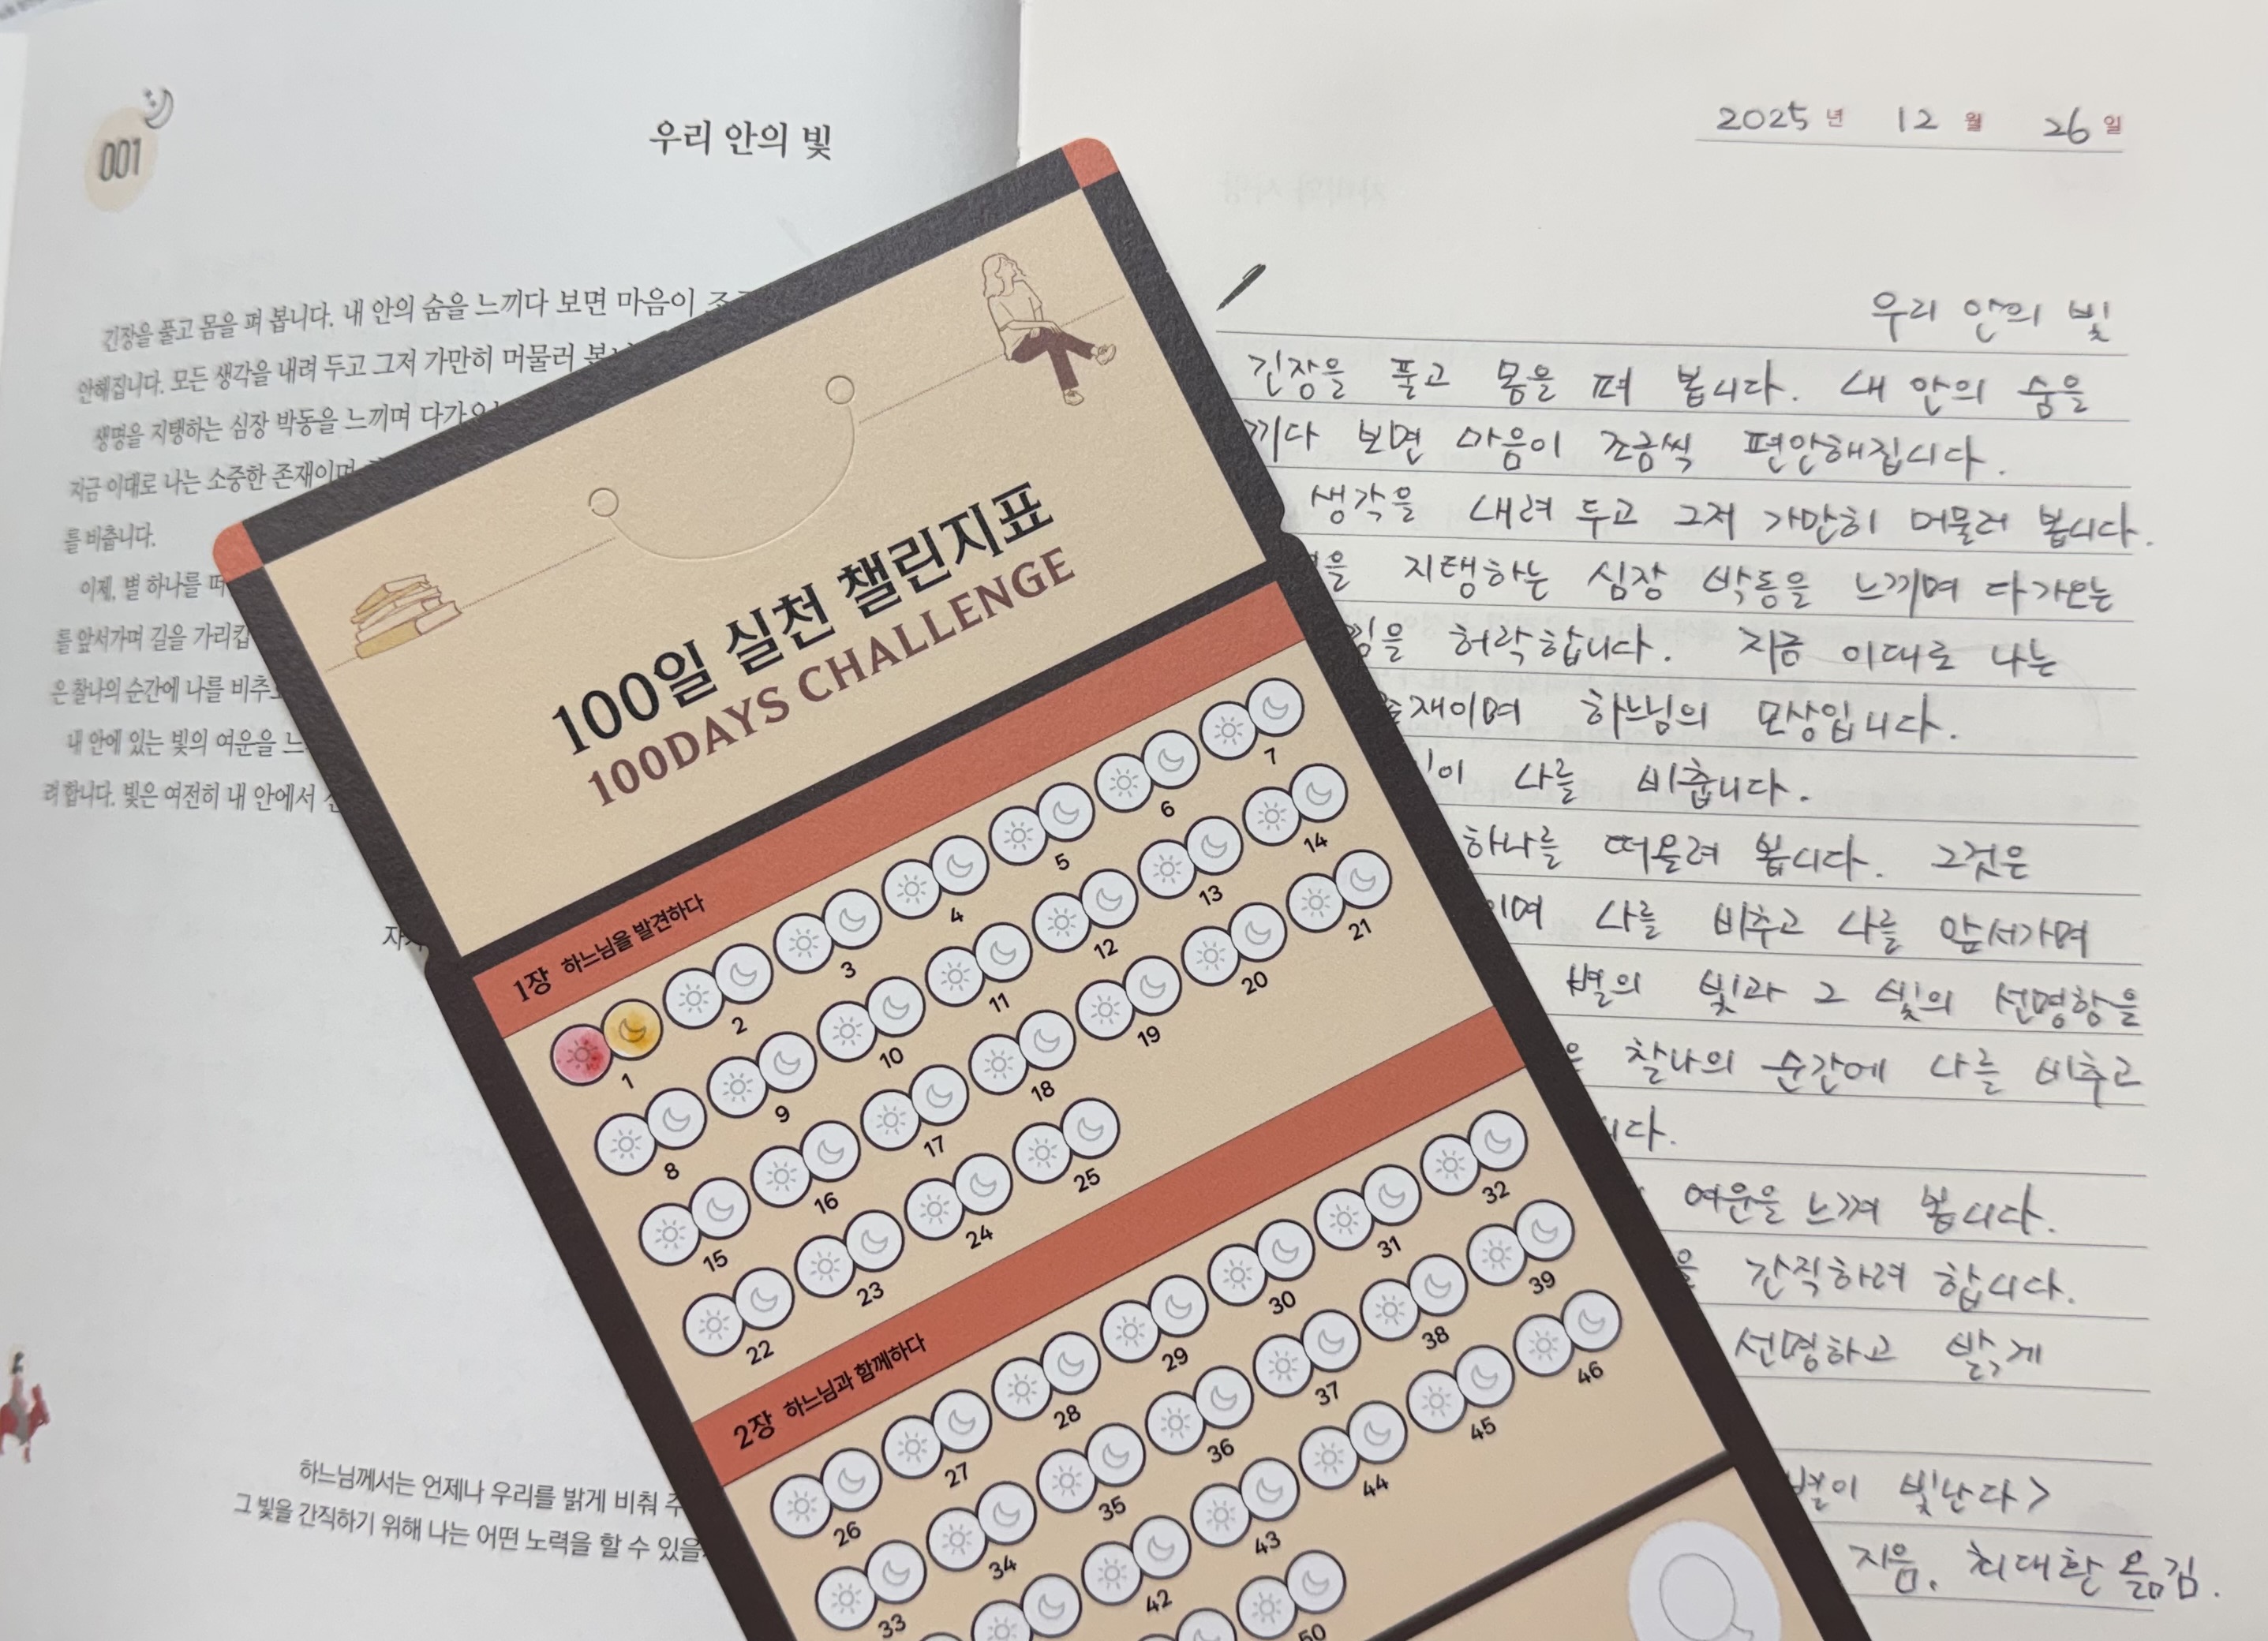 001
우리 안의 빛
긴장을 풀고 몸을 펴 봅니다. 내 안의 숨을 느끼다 보면 마음이
안해집니다. 모든 생각을 내려 두고 그저 가만히 머물러
생명을 지탱하는 심장 박동을 느끼며
지금 이대로 나는 소중한 존재이며
를 비춥니다.
이제, 별 하나를
를 앞서가며 길을
은 찰나의 순간에 나를
내 안에 있는 빛의 여운을
려 합니다. 빛은 여전히 내 안에서
하느님께서는 언제나 우리를 밝게 비춰
그 빛을 간직하기 위해 나는 어떤 노력을 할 수
100일 실천 챌린지표
100DAYS CHALLENGE
1장 하느님을 발견하다
1 2 3 4 5 6 7
8 9 10 11 12 13 14
15 16 17 18 19 20 21
22 23 24 25
2장 하느님과 함께하다
26 27 28 29 30 31 32
33 34 35 36 37 38 39
42 43 44 45 46
50
2025년 12월 26일
우리 안의 빛
긴장을 풀고 몸을 펴 봅니다. 내 안의 숨을
끼다 보면 마음이 조금씩 편안해집니다.
생각을 내려 두고 그저 가만히 머물러 봅니다.
지탱하는 심장 박동을 느끼며 다가오는
허락합니다. 지금 이대로 나는
존재이며 하느님의 모상입니다.
나를 비춥니다.
하나를 떠올려 봅니다. 그것은
이며 나를 비추고 나를 앞서가며
별의 빛과 그 빛의 선명함을
찰나의 순간에 나를 비추고
니다.
여운을 느껴 봅니다.
간직하려 합니다.
선명하고 밝게
별이 빛난다>
지음, 최대환 옮김.